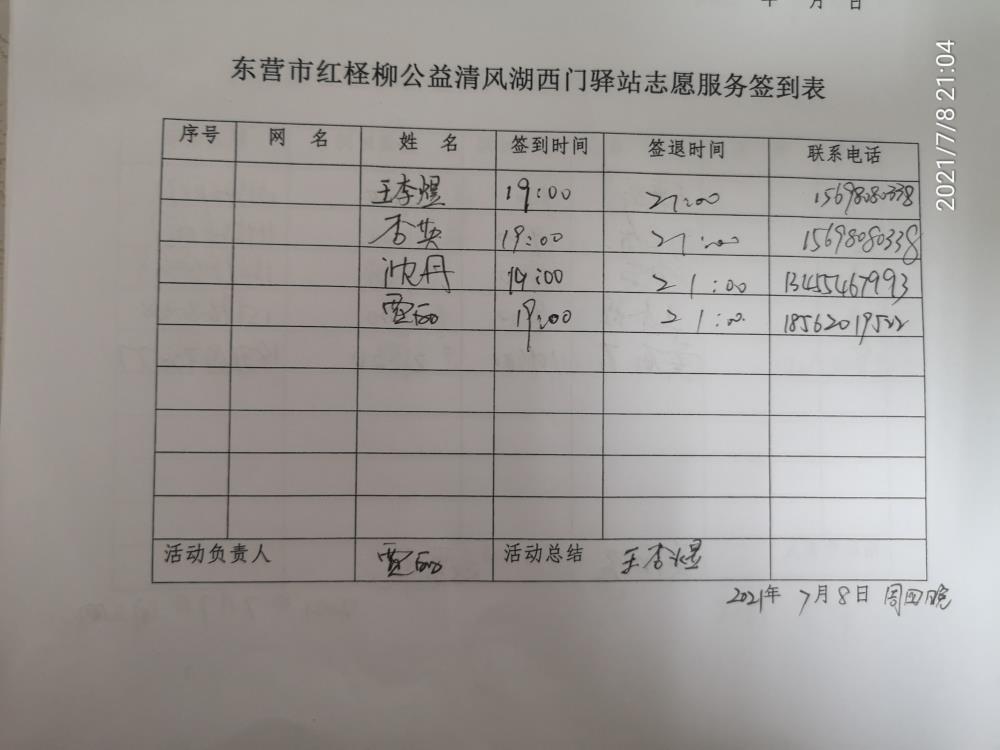 年 月 日
东营市红柽柳公益清风湖西门驿站志愿服务签到表
序号 网 名 姓 名 签到时间 签退时间 联系电话
王李煜 19:00 21:00 15698080338
杏英 19:00 21:00 15698080338
沈丹 19:00 21:00 13455467993
贾 19:00 21:00 18562019522
活动负责人 贾 活动总结 王李煜
2021年 7月8日 周四晚
2021/7/8 21:04